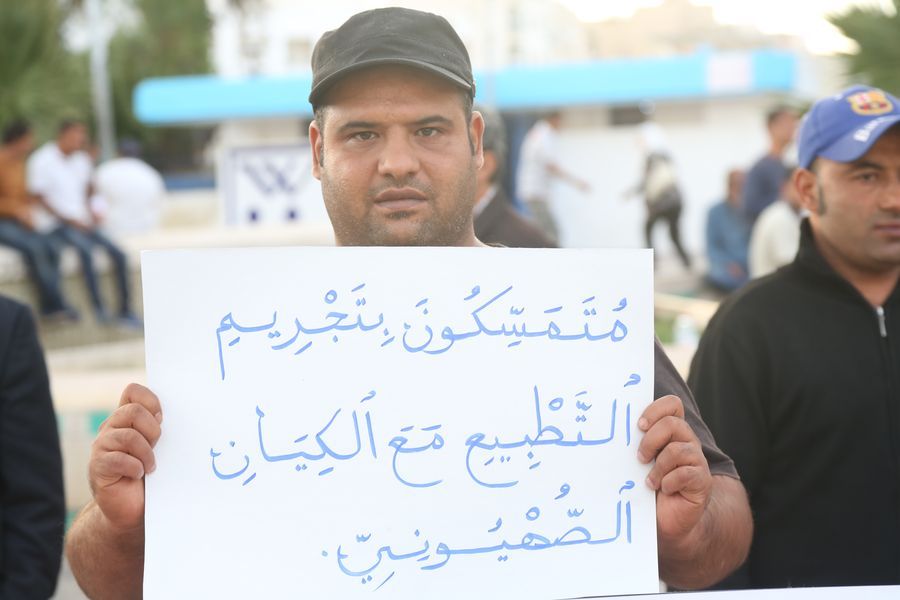 مُتَمَسِّكُونَ بِتَجْرِيمِ
ٱلتَّطْبِيعِ مَعَ ٱلْكِيَانِ
ٱلصُّهْيُونِيِّ.